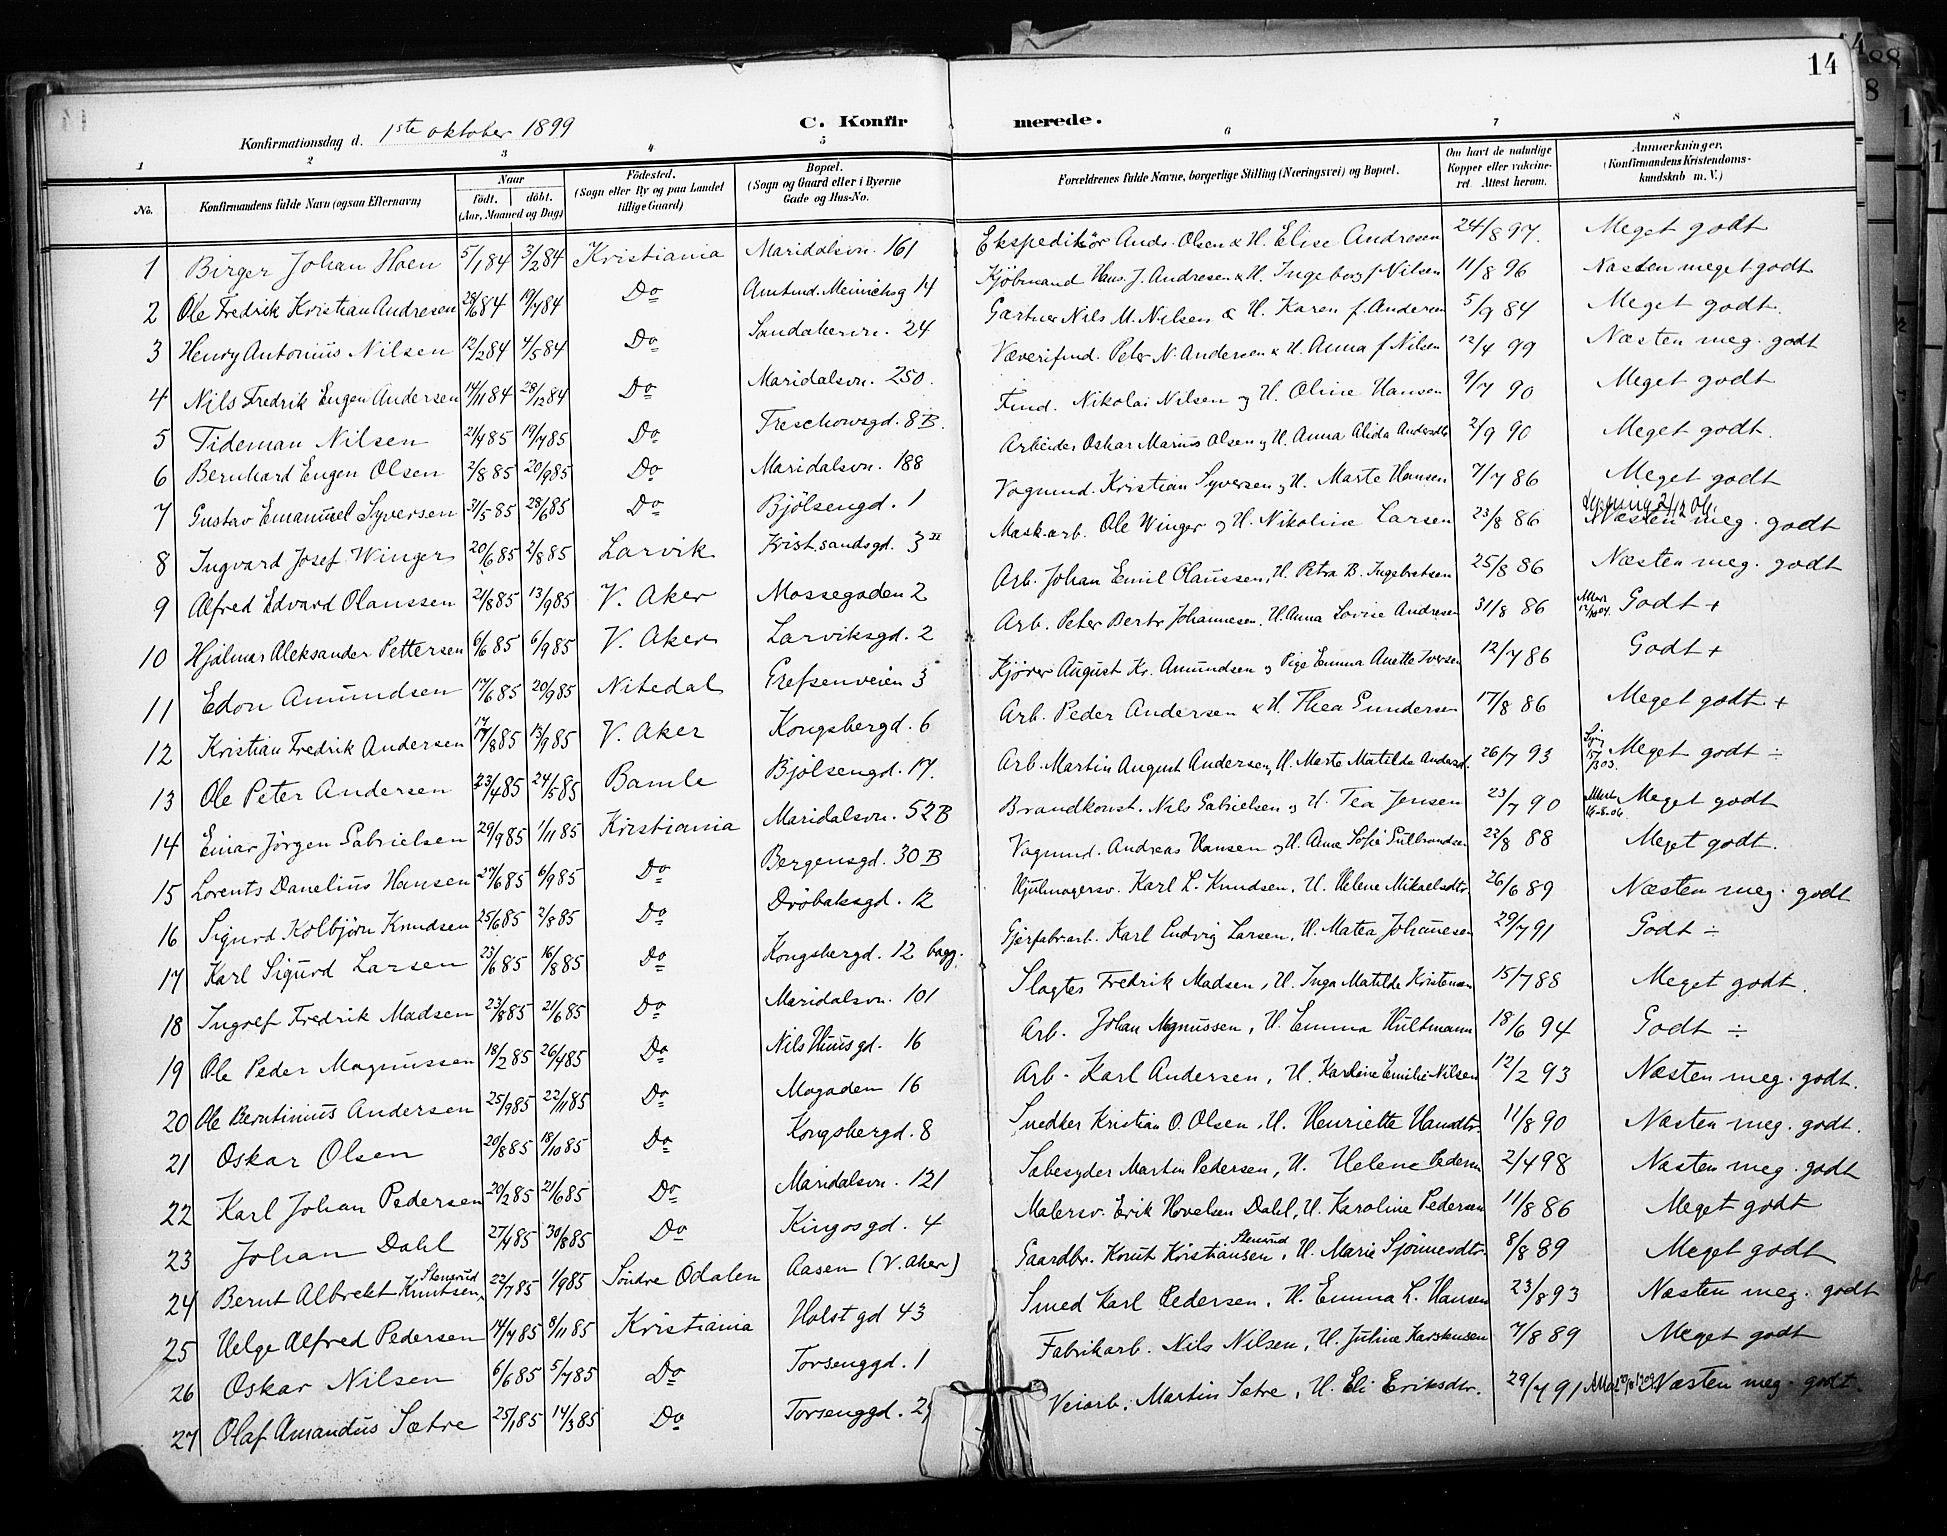 14
Konfirmationsdag d. 1ste oktober 1899 C. Konfirmerede.
1 2 3 4 5 6 7 8
No. Konfirmandens fulde Navn (ogsaa Efternavn) Naar født. døbt. (Aar, Maaned og Dag) Fødested. (Sogn eller By og paa Landet tillige Gaard) Bopæl. (Sogn og Gaard eller i Byerne Gade og Hus-No. Forældrenes fulde Navne, borgerlige Stilling (Næringsvei) og Bopæl. Om havt de naturlige Kopper eller vakcineret. Attest herom. Anmerkninger. (Konfirmandens Kristendomskundskab m. V.)
1 Birger Johan Hoen 5/1 84 3/2 84 Kristiania Maridalsvn. 161 Ekspeditør Ands. Olsen & H. Elise Andresen 24/8 97. Meget godt
2 Ole Fredrik Kristian Andresen 28/6 84 19/7 84 Do Amtmd. Meinichsg 14 Kjøbmand Hans J. Andresen & H. Ingeborg f Nilsen 11/8 96 Næsten meget godt
3 Henry Antonius Nilsen 12/2 84 4/5 84 Do Sandakervn. 24 Gartner Nils M. Nilsen & H. Karen f. Andersen 5/9 84 Meget godt.
4 Nils Fredrik Eugen Andersen 14/11 84 28/12 84 Do Maridalsvn. 250. Væverifmd. Peter N. Andersen & H. Anna f Nilsen 12/4 99 Næsten meg. godt
5 Tideman Nilsen 21/4 85 19/7 85 Do Treschowsgd. 8 B. Fmd. Nikolai Nilsen og H. Oline Hansen 9/7 90 Meget godt
6 Bernhard Eugen Olsen 2/8 85 20/9 85 Do Maridalsvn. 188 Arbeider Oskar Marius Olsen og H. Anna Alida Andersdtr 2/9 90 Meget godt.
7 Gustav Emanuel Syversen 31/5 85 28/6 85 Do Bjølsengd. 1 Vognmd. Kristian Syversen og H. Marte Hansen 7/7 86 Meget godt
8 Ingvard Josef Winger 20/6 85 2/8 85 Larvik Krist.sandsgd. 3 II Mask.arb. Ole Winger og H. Nikoline Larsen 23/8 86 Næsten meg. godt
9 Alfred Edvard Olaussen 21/8 85 13/9 85 V. Aker Mossegaden 2 Arb. Johan Emil Olaussen, H. Petra B. Ingebretsen 25/8 86 Næsten meg. godt
10 Hjalmar Aleksander Pettersen 6/6 85 6/9 85 V. Aker Larviksgd. 2 Arb. Peter Bertr Johannesen, H. Anna Lovise Andresen 31/8 86 Godt +
11 Edon Amundsen 17/6 85 20/9 85 Nitedal Grefsenveien 3 Kjører August Kr. Amundsen og Pige Emma Anette Iversen 12/7 86 Godt +
12 Kristian Fredrik Andersen 17/8 85 13/9 85 V. Aker Kongsbergd. 6 Arb. Peder Andersen & H. Thea Gundersen 17/8 86 Meget godt +
13 Ole Peter Andersen 23/4 85 24/5 85 Bamle Bjølsengd. 17. Arb. Martin August Andersen, H. Marte Matilde Andersd. 26/7 93 Meget godt ÷
14 Einar Jørgen Gabrielsen 29/9 85 1/11 85 Kristiania Maridalsvn. 52 B Brandkonst. Nils Gabrielsen og H. Tea Jensen 23/7 90 Meget godt
15 Lorents Danelius Hansen 27/6 85 6/9 85 Do Bergensgd. 30 B Vognmd. Andreas Hansen og H. Anne Sofie Gulbrandsen 22/8 88 Meget godt.
16 Sigurd Kolbjørn Knudsen 25/6 85 2/8 85 Do Drøbaksgd. 12 Hjulmagersv. Karl L. Knudsen, H. Helene Mikaelsdtr. 26/6 89 Næsten meg. godt
17 Karl Sigurd Larsen 23/6 85 16/8 85 Do Kongsbergd. 12 bagg. Gjærfabr.arb. Karl Ludvig Larsen, H. Matea Johannesen 29/7 91 Godt ÷
18 Ingolf Fredrik Madsen 23/8 85 21/6 85 Do Maridalsvn. 101 Slagter Fredrik Madsen, H. Inga Matilde Kristensen 15/7 88 Meget godt.
19 Ole Peder Magnussen 18/2 85 26/4 85 Do Nils Huusgd. 16 Arb. Johan Magnussen, H. Emma Hultmann 18/6 94 Godt ÷
20 Ole Berntinius Andersen 25/9 85 22/11 85 Do Mogaden 16 Arb. Karl Andersen, H. Karoline Emilie Nilsen 12/2 93 Næsten meg. godt.
21 Oskar Olsen 20/8 85 18/10 85 Do Kongsbergd. 8 Snedker Kristian O. Olsen, H. Henriette Hansdtr. 11/8 90 Næsten meg. godt.
22 Karl Johan Pedersen 20/2 85 21/6 85 Do Maridalsvn. 121 Sæbesyder Martin Pedersen, H. Helene Pedersen 2/4 98 Næsten meg. godt
23 Johan Dahl 27/4 85 30/8 85 Do Kingosgd. 4 Malersv. Erik Hovelsen Dahl, H. Karoline Pedersen 11/8 86 Meget godt
24 Bernt Albrekt Knutsen Stensrud 22/7 85 1/9 85 Søndre Odalen Aasen (V. Aker) Gaardbr. Knut Kristiansen Stensrud, H. Marie Sjønnesdtr. 8/8 89 Meget godt
25 Helge Alfred Pedersen 14/7 85 8/11 85 Kristiania Holst gd 43 Smed Karl Pedersen, H. Emma L. Hansen 23/8 93 Næsten meg. godt
26 Oskar Nilsen 6/6 85 5/7 85 Do Torsenggd. 1 Fabrikarb. Nils Nilsen, H. Juline Karstensen 7/8 89 Meget godt
27 Olaf Amandus Sætre 25/1 85 14/3 85 Do Torsenggd. 2 Veiarb. Martin Sætre, H. Eli Eriksdtr. 29/7 91 Næsten meg. godt.